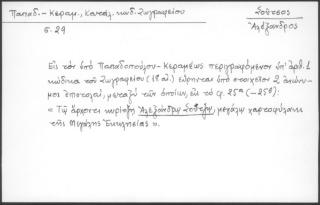 Παπαδ.- Κεραμ., Κατάλ. κωδ. Ζωγραφείου
Σούτσος
Ἀλέξανδρος
σ. 29
Εἰς τὸν ὑπὸ Παπαδοπούλου-Κεραμέως περιγραφόμενον ὑπ' ἀριθ. 1
κώδικα τοῦ Ζωγραφείου (18 αἰ.) εὕρηνται ὑπὸ στοιχεῖον 2 ἀνώνυ-
μοι ἐπιστολαί, μεταξὺ τῶν ὁποίων, εἰς τὸ φ. 25α (-25β):
« Τῷ ἄρχοντι κυρίτζῃ Ἀλεξάνδρῳ Σούτζῳ, μεγάλῳ χαρτοφύλακι
τῆς Μεγάλης Ἐκκλησίας ».